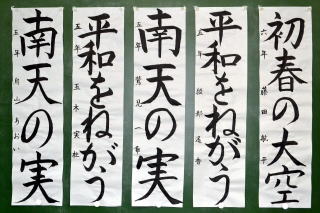 初春の大空
六年 藤田
平和をねがう
五年
南天の実
五年 鷲見
平和をねがう
五年 玉木実社
南天の実
五年